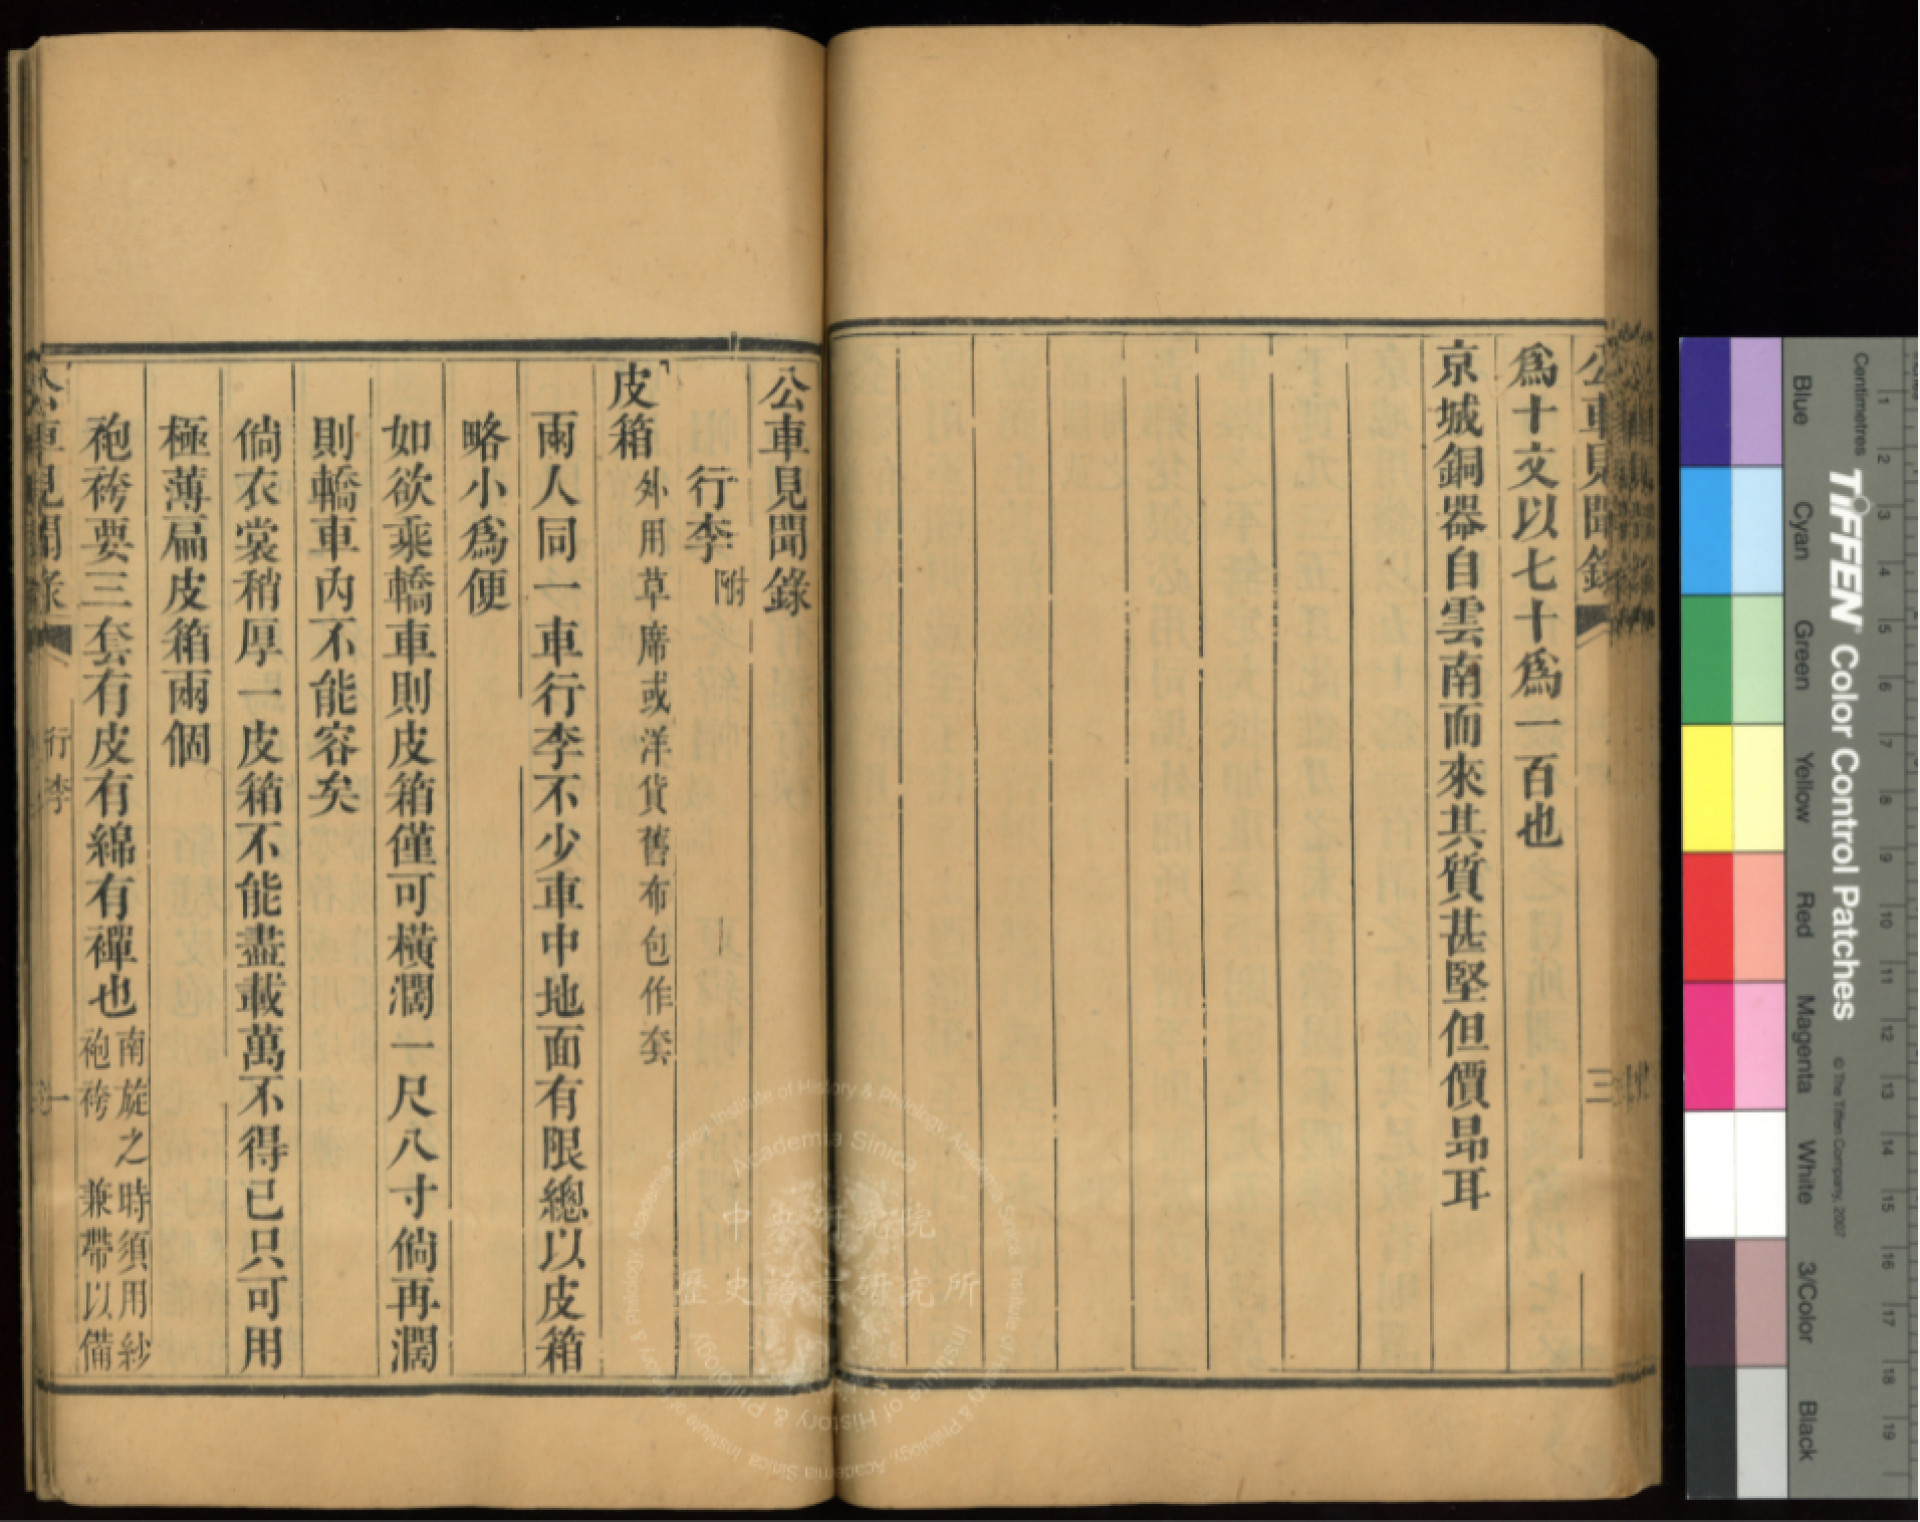 爲十文以七十爲一百也
京城銅器自雲南而來其質甚堅但價昻耳
三
公車見聞錄
行李附
皮箱外用草席或洋貨舊布包作套
兩人同一車行李不少車中地面有限總以皮箱
略小爲便
如欲乘轎車則皮箱僅可橫濶一尺八寸倘再濶
則轎車內不能容矣
倘衣裳稍厚一皮箱不能盡載萬不得已只可用
極薄扁皮箱兩個
袍袴要三套有皮有綿有襌也南旋之時須用紗
袍袴 兼帶以備
公車見聞錄
行李
一
中央研究院
歷史語言研究所
Academia Sinica
Institute of History & Philology, Academia Sinica
TIFFEN Color Control Patches
© The Tiffen Company, 2007
Centimetres
1 2 3 4 5 6 7 8 9 10 11 12 13 14 15 16 17 18 19
Blue
Cyan
Green
Yellow
Red
Magenta
White
3/Color
Black